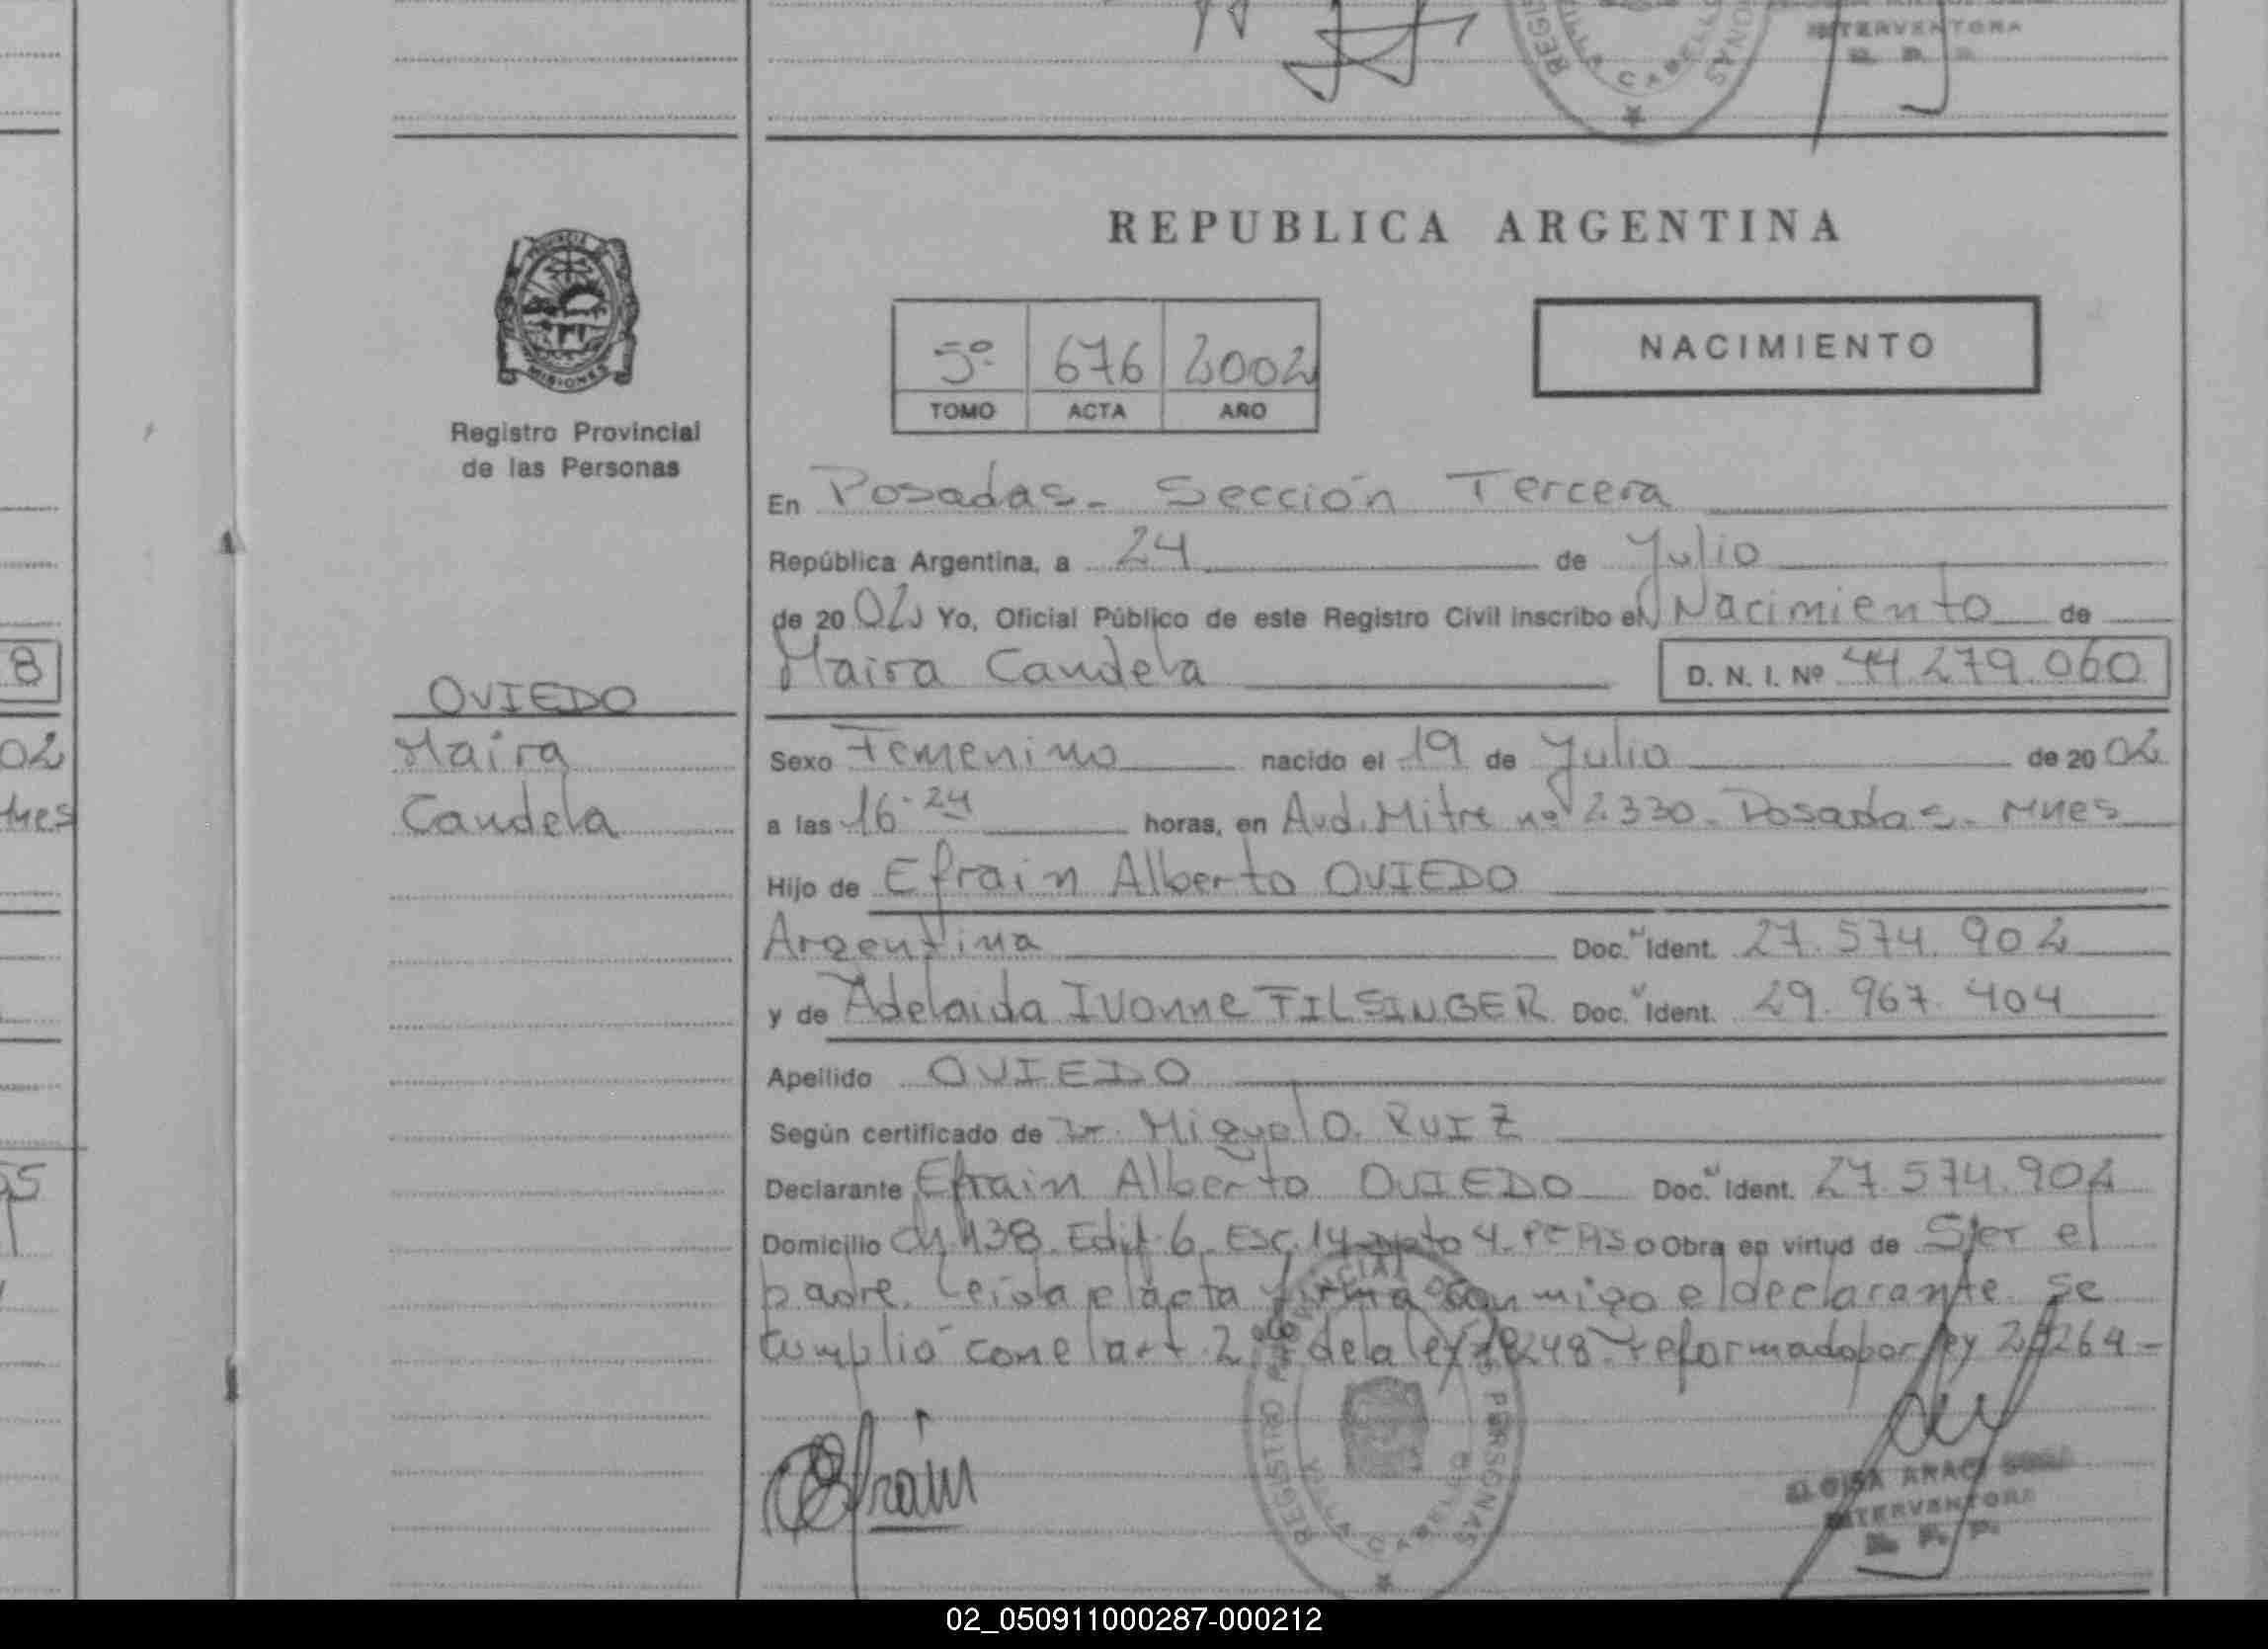 INTERVENTORA
REPUBLICA ARGENTINA
5º 676 2002
TOMO ACTA AÑO
NACIMIENTO
PROVINCIA DE
MISIONES
Registro Provincial
de las Personas
En Posadas - Sección Tercera
República Argentina, a 24 de Julio
de 2002 Yo, Oficial Público de este Registro Civil inscribo el Nacimiento de
Maira Candela D. N. I. Nº 44.279.060
OVIEDO
Maira
Candela
Sexo Femenino nacido el 19 de Julio de 2002
a las 16.24 horas, en Avd. Mitre nº 2330 - Posadas - Mnes
Hijo de Efrain Alberto OVIEDO
Argentina Doc. Ident. 27.574.902
y de Adelaida Ivonne FILSINGER Doc. Ident. 29.967.404
Apellido OVIEDO
Según certificado de Dr. Miguel O. RUIZ
Declarante Efrain Alberto OVIEDO Doc. Ident. 27.574.902
Domicilio Ch 138 Edif. 6 Esc. 14 apto 4. Obra en virtud de Ser el
padre. Leída el acta firma conmigo el declarante. Se
cumplió con el art 2 de la ley 18248 reformado por ley 20264 -
Efrain
REGISTRO PROVINCIAL DE LAS PERSONAS
INTERVENTORA
02_050911000287-000212